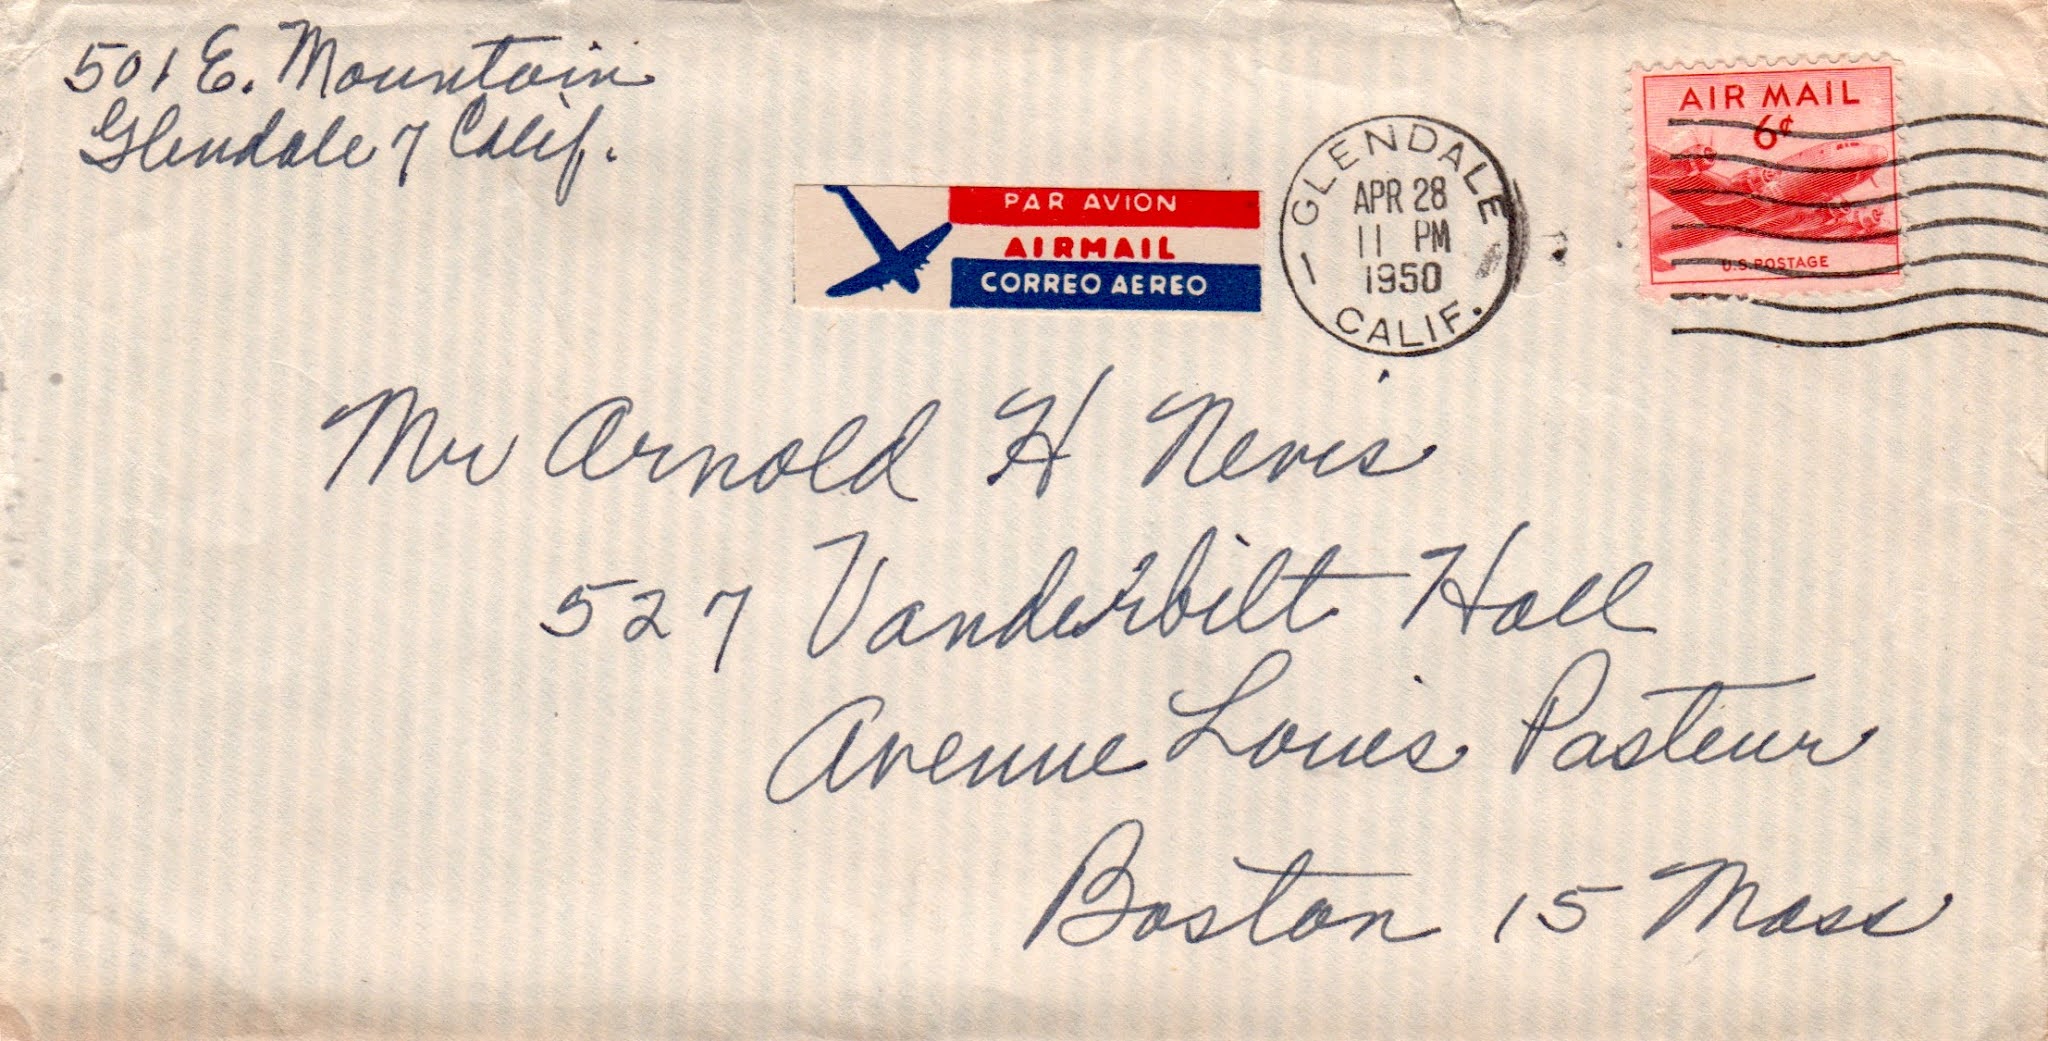 501 E. Mountain
Glendale 7 Calif.
PAR AVION
AIRMAIL
CORREO AEREO
GLENDALE
APR 28
11 PM
1950
CALIF.
AIR MAIL
6¢
U.S. POSTAGE
Mr Arnold H Nevis
527 Vanderbilt Hall
Avenue Louis Pasteur
Boston 15 Mass